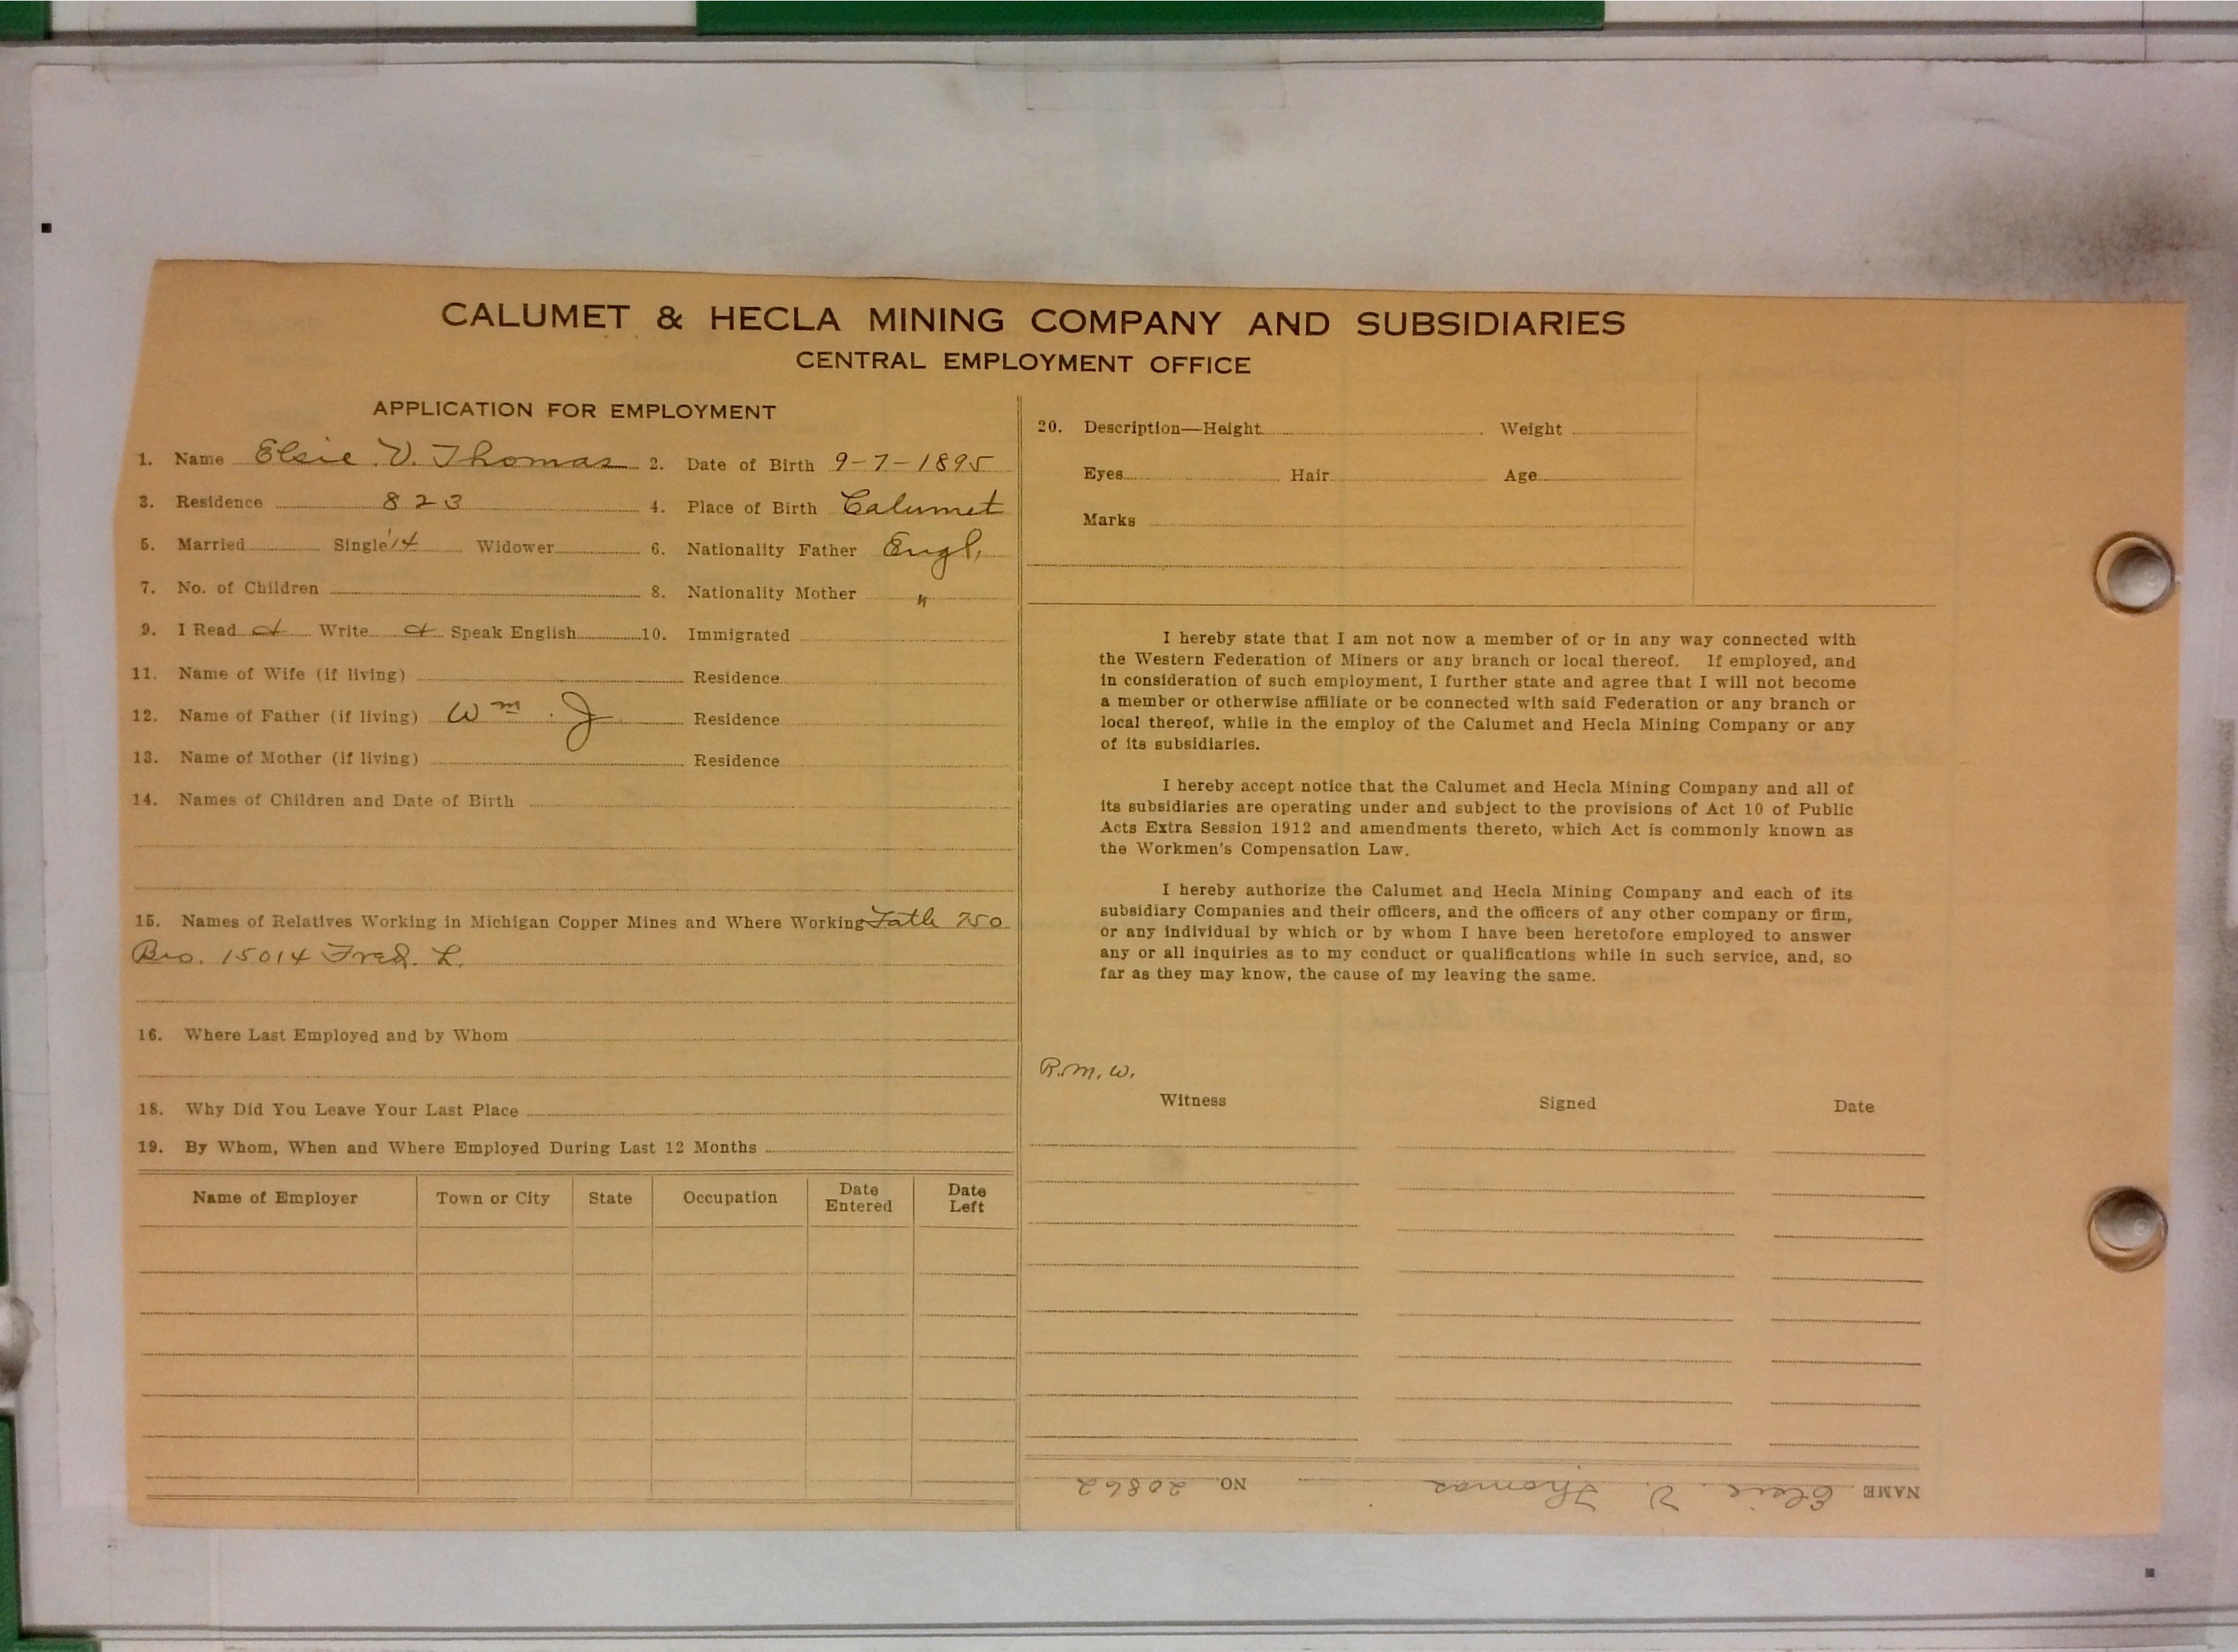 CALUMET & HECLA MINING COMPANY AND SUBSIDIARIES
CENTRAL EMPLOYMENT OFFICE
APPLICATION FOR EMPLOYMENT
1. Name Elsie V. Thomas 2. Date of Birth 9-7-1895
3. Residence 823 4. Place of Birth Calumet
5. Married Single '14 Widower 6. Nationality Father Engl.
7. No. of Children 8. Nationality Mother "
9. I Read Write Speak English 10. Immigrated
11. Name of Wife (if living) Residence
12. Name of Father (if living) Wm. J Residence
13. Name of Mother (if living) Residence
14. Names of Children and Date of Birth
15. Names of Relatives Working in Michigan Copper Mines and Where Working Fath 750
Bro. 15014 Fred. L.
16. Where Last Employed and by Whom
18. Why Did You Leave Your Last Place
19. By Whom, When and Where Employed During Last 12 Months
Name of Employer Town or City State Occupation Date Entered Date Left
20. Description—Height Weight
Eyes Hair Age
Marks
I hereby state that I am not now a member of or in any way connected with
the Western Federation of Miners or any branch or local thereof. If employed, and
in consideration of such employment, I further state and agree that I will not become
a member or otherwise affiliate or be connected with said Federation or any branch or
local thereof, while in the employ of the Calumet and Hecla Mining Company or any
of its subsidiaries.
I hereby accept notice that the Calumet and Hecla Mining Company and all of
its subsidiaries are operating under and subject to the provisions of Act 10 of Public
Acts Extra Session 1912 and amendments thereto, which Act is commonly known as
the Workmen's Compensation Law.
I hereby authorize the Calumet and Hecla Mining Company and each of its
subsidiary Companies and their officers, and the officers of any other company or firm,
or any individual by which or by whom I have been heretofore employed to answer
any or all inquiries as to my conduct or qualifications while in such service, and, so
far as they may know, the cause of my leaving the same.
R.M.W.
Witness Signed Date
NAME Elsie V. Thomas NO. 20862